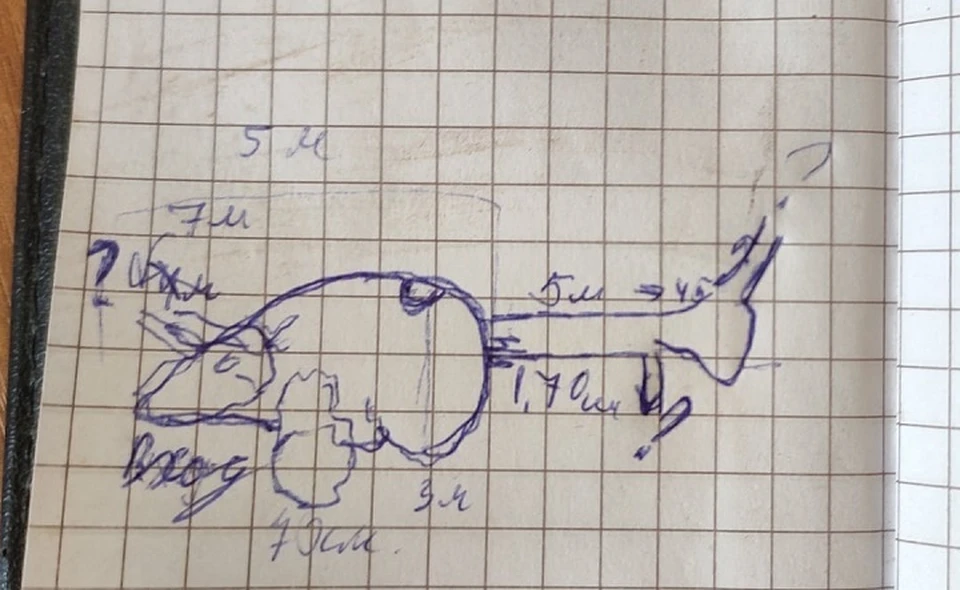 5 м
7м
?
5м → 45
?
1,70м
?
Вход
3м
70см.